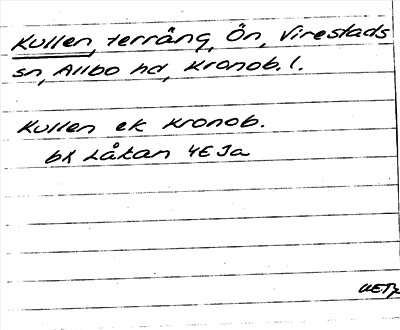 Kullen, terräng, Ön, Virestads
sn, Allbo hd, Kronob. l.
Kullen ek Kronob.
bl Låkan 4E Ja